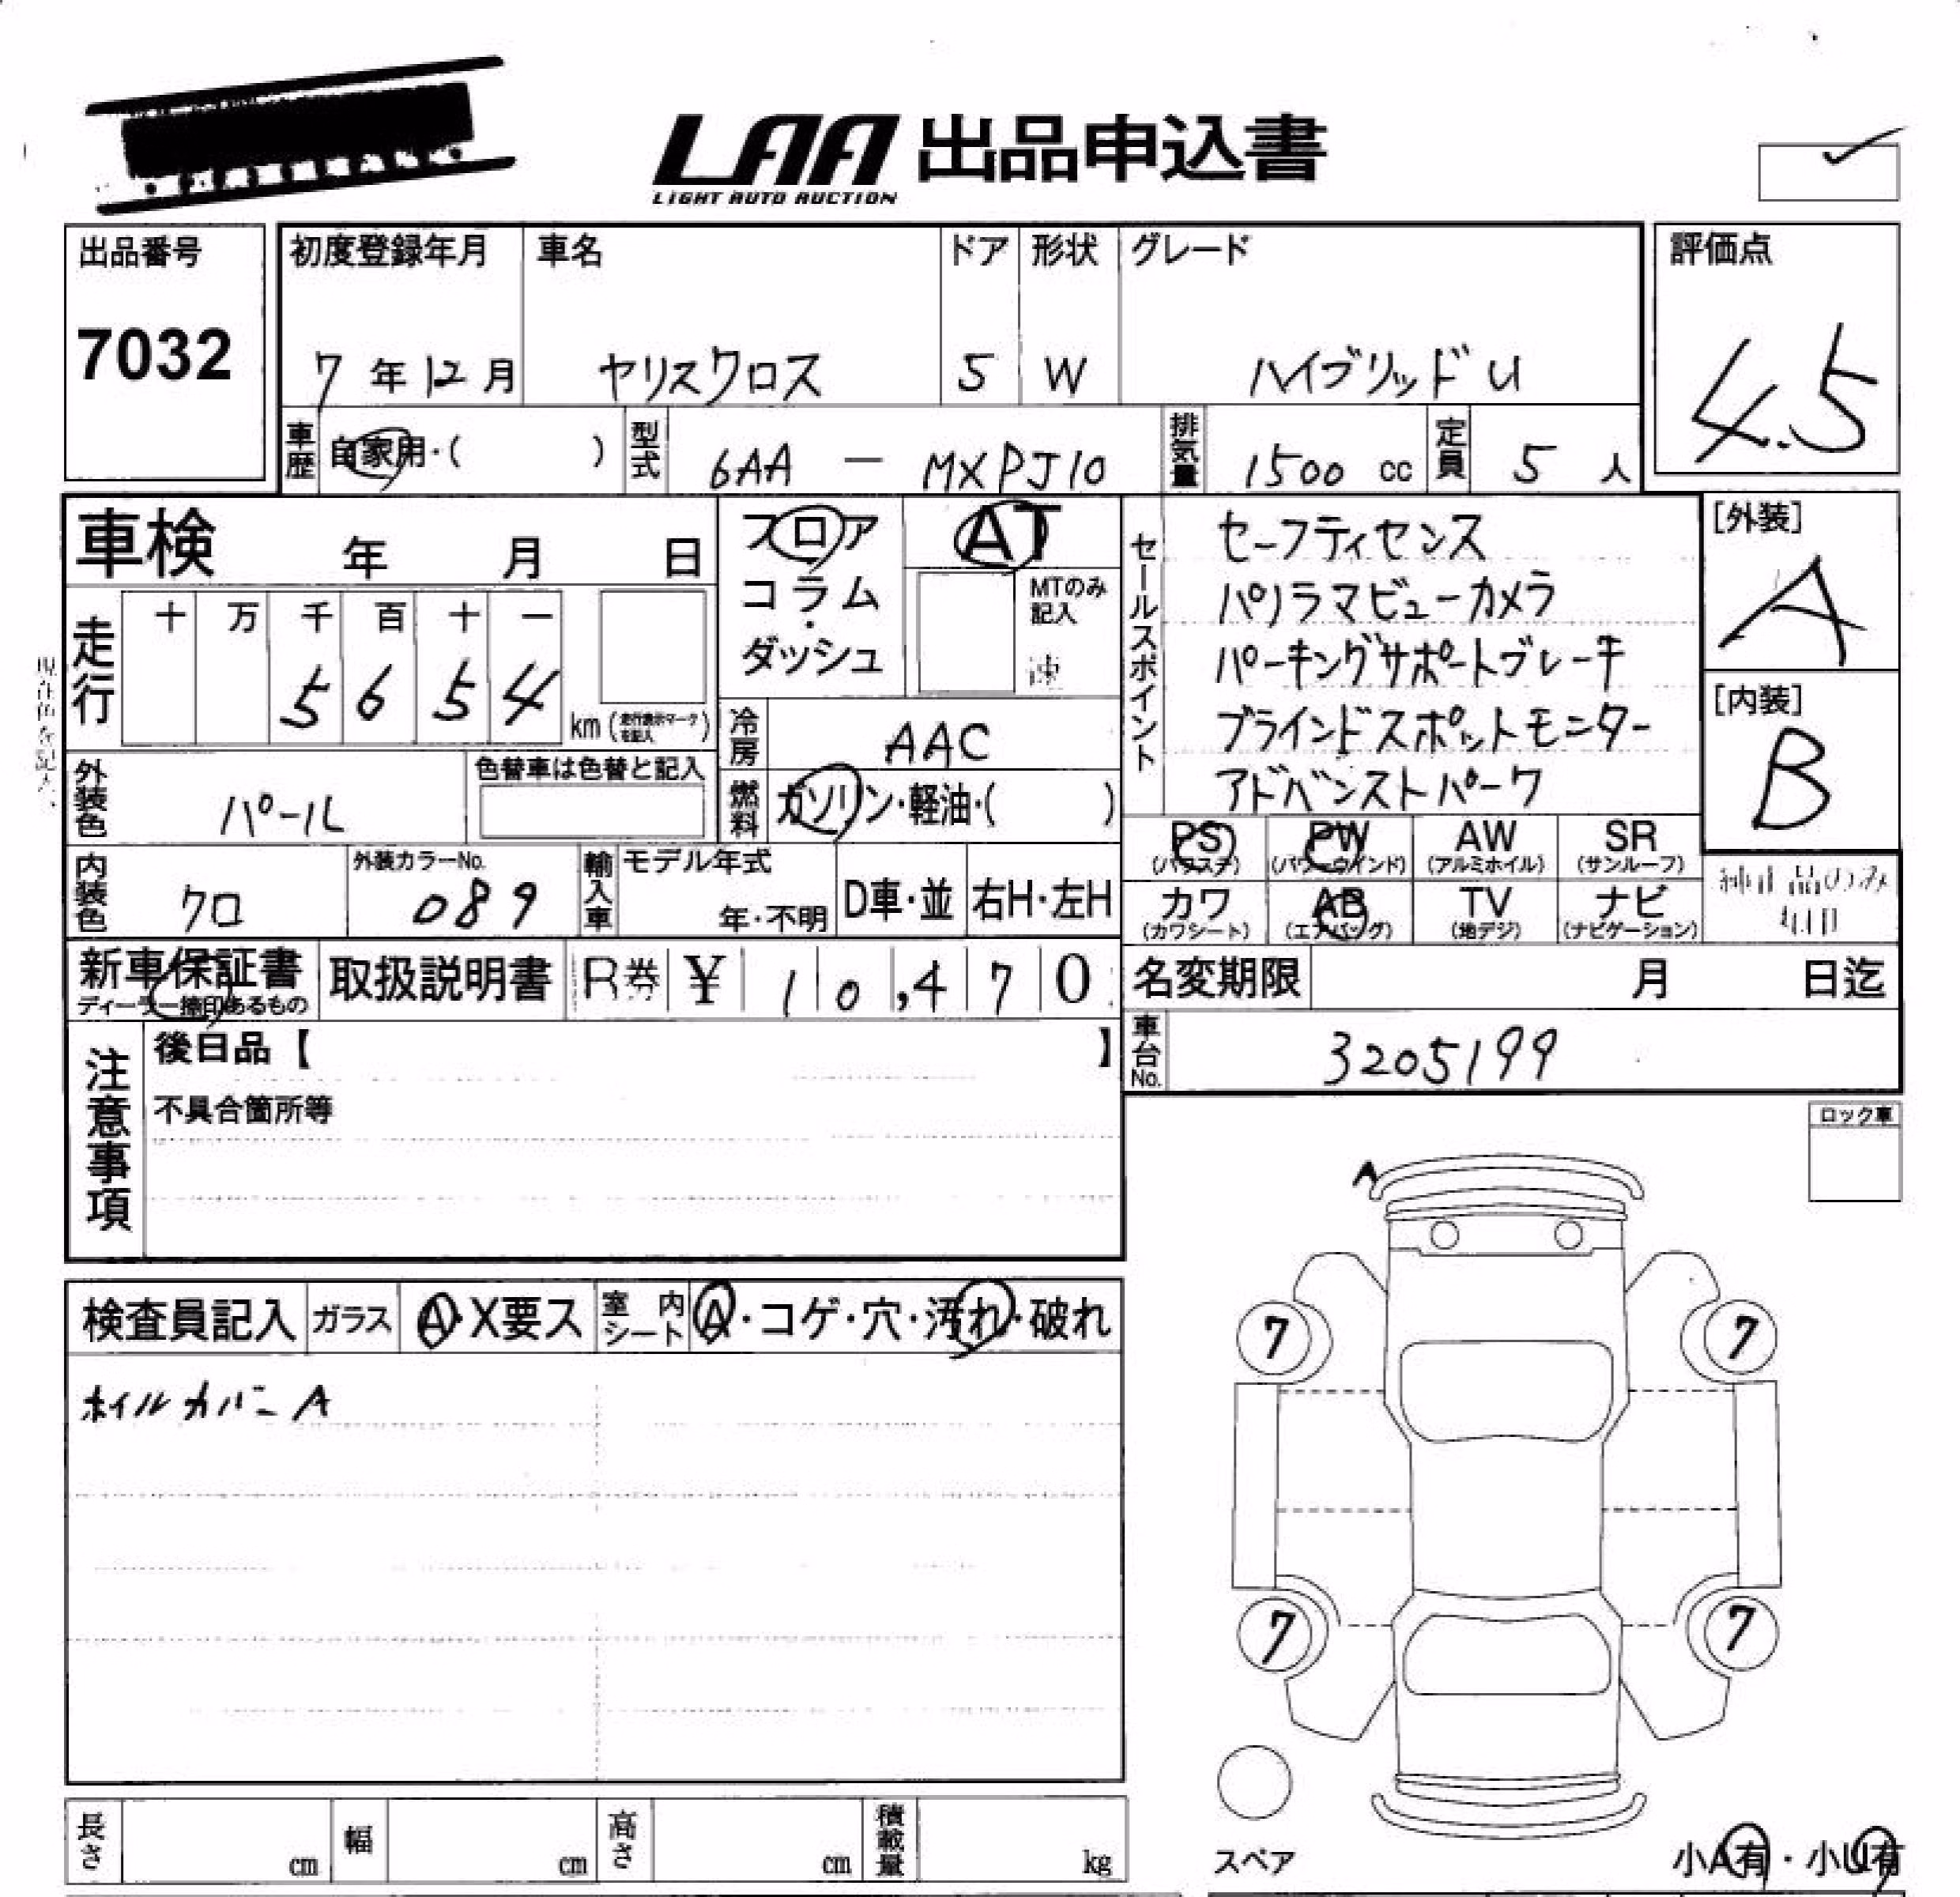 LAA 出品申込書
LIGHT AUTO AUCTION
出品番号
7032
初度登録年月
7年12月
車名
ヤリスクロス
ドア
5
形状
W
グレード
ハイブリッドU
評価点
4.5
車歴
自家用・( )
型式
6AA － MXPJ10
排気量
1500 cc
定員
5 人
車検 年 月 日
フロア
コラム・
ダッシュ
AT
MTのみ
記入
速
セールスポイント
セーフティセンス
パノラマビューカメラ
パーキングサポートブレーキ
ブラインドスポットモニター
アドバンストパーク
[外装]
A
[内装]
B
現在色を記入
走行
十 万 千 百 十 一
5 6 5 4
km (走行表示マークを記入)
冷房
AAC
外装色
パール
色替車は色替と記入
燃料
ガソリン・軽油・( )
PS
(パワステ)
PW
(パワーウインド)
AW
(アルミホイル)
SR
(サンルーフ)
カワ
(カワシート)
AB
(エアバッグ)
TV
(地デジ)
ナビ
(ナビゲーション)
内装色
クロ
外装カラーNo.
089
輸入車
モデル年式
年・不明
D車・並
右H・左H
新車保証書
ディーラー捺印あるもの
取扱説明書
R券 ¥ 10,470
名変期限 月 日迄
車台No.
3205199
注意事項
後日品【 】
不具合箇所等
ロック車
A
検査員記入
ガラス
A・X要ス
室内シート
A・コゲ・穴・汚れ・破れ
ホイルカバーA
7
7
7
7
スペア
小A有・小U有
長さ cm
幅 cm
高さ cm
積載量 kg